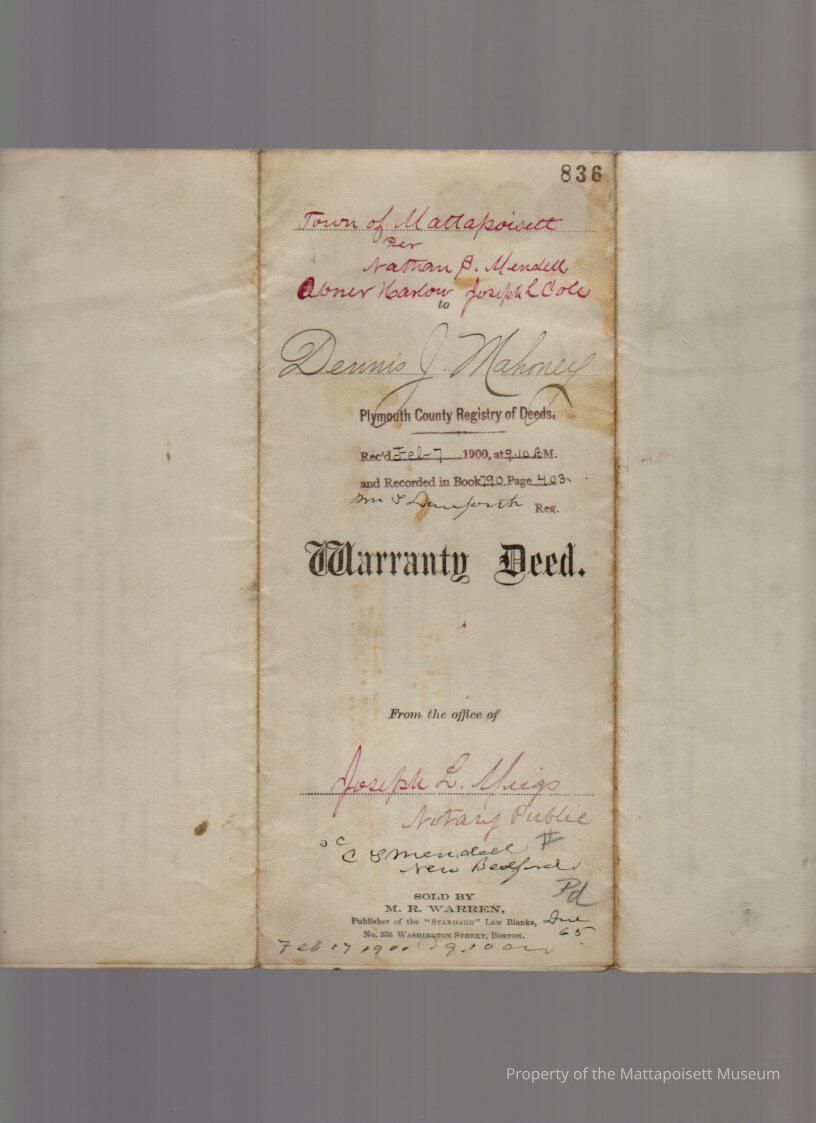 836
Town of Mattapoisett
Per
Nathan S. Mendell
Abner Harlow Joseph L Cole
to
Dennis J. Mahoney
Plymouth County Registry of Deeds.
Rec'd Feb-7 1900, at 9.10 A M.
and Recorded in Book 790 Page 403.
Wm S Danforth Reg.
Warranty Deed.
From the office of
Joseph L. Meigs
Notary Public
C S Mendell
New Bedford
Pd
SOLD BY
M. R. WARREN,
Publisher of the "STANDARD" Law Blanks, Due
No. 336 WASHINGTON STREET, BOSTON. 65
Feb 17 1900 9.10 am
Property of the Mattapoisett Museum